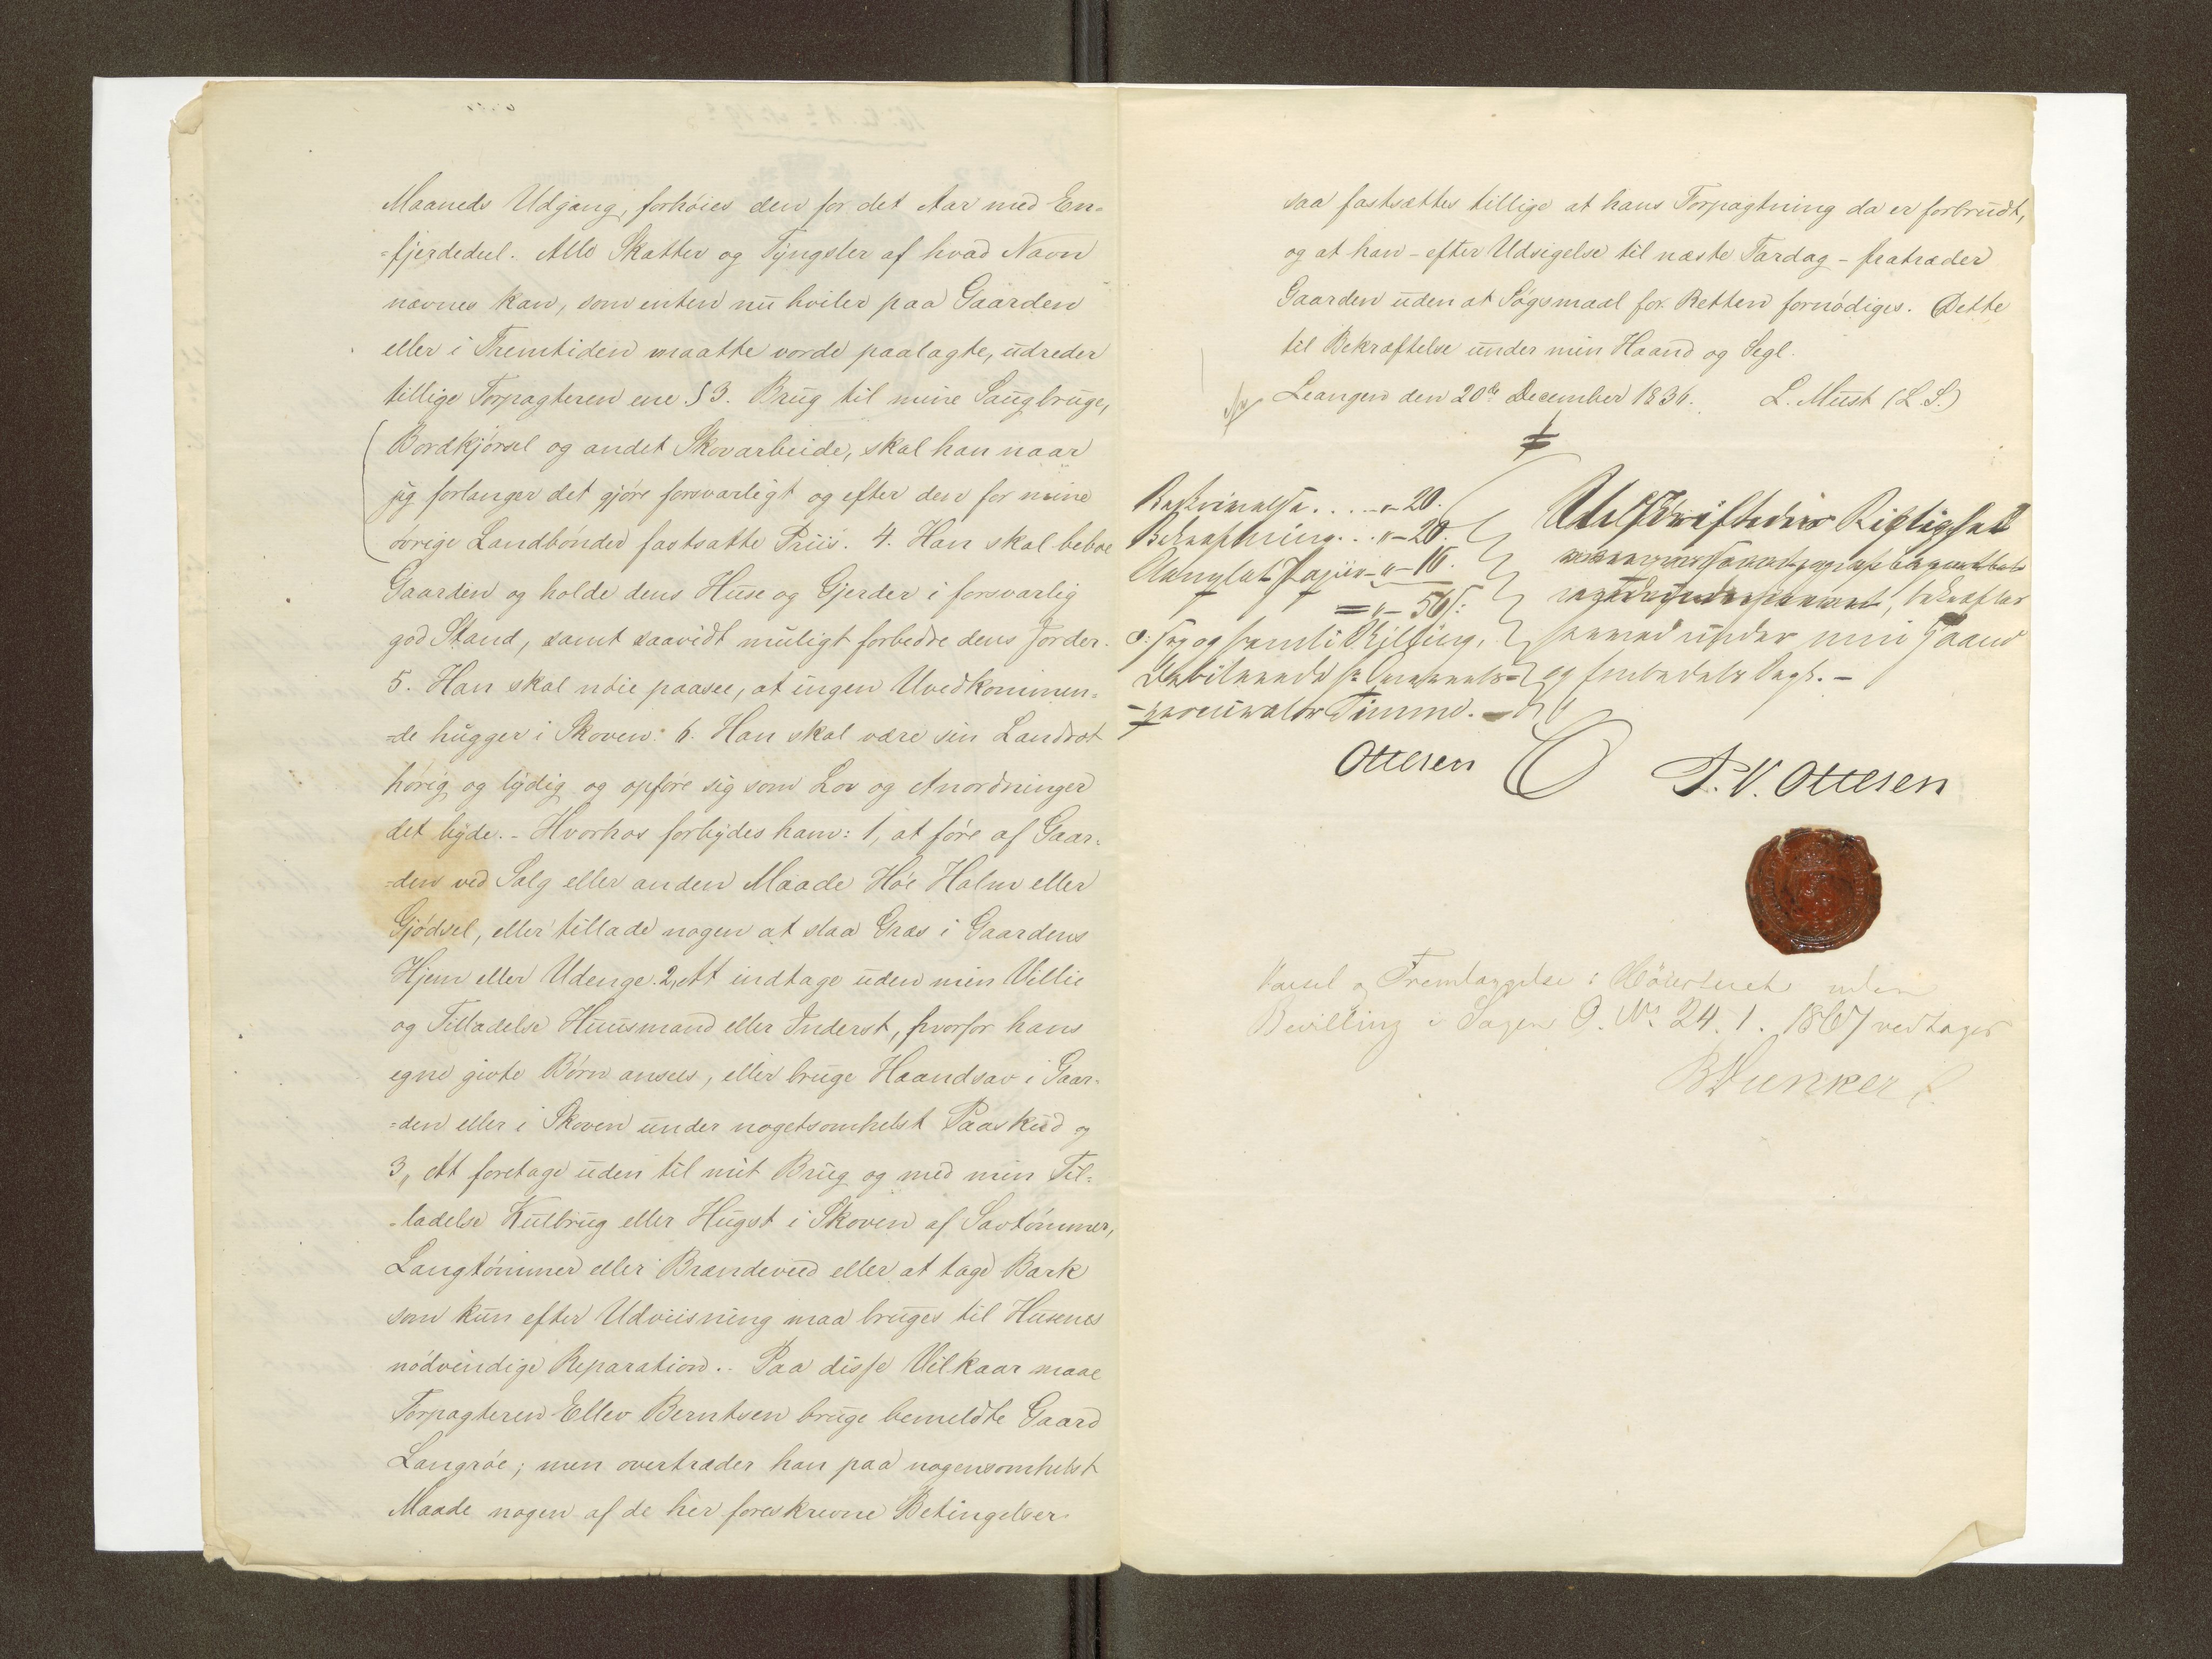 Maaneds Udgang, forhøies den for det Aar med En=
=fjerdedeel. Alle Skatter og Tyngsler af hvad Navn
nævnes kan, som enten nu hviler paa Gaarden
eller i Fremtiden maatte vorde paalagte, udreder
tillige Forpagteren ene. § 3. Brug til mine Saugbruge,
Bordkjørsel og andet Skovarbeide, skal han naar
jeg forlanger det gjøre forsvarligt og efter den for mine
øvrige Landbønder fastsatte Priis. 4. Han skal beboe
Gaarden og holde dens Huse og Gjerder i forsvarlig
god Stand, samt saavidt muligt forbedre dens Jorder.
5. Han skal nøie paasee, at ingen Uvedkommen=
=de hugger i Skoven: 6. Han skal være sin Landdrot
hørig og lydig og opføre sig som Lov og Anordninger
det byde. - Hvorhos forbydes ham: 1, at føre af Gaar=
=den ved Salg eller anden Maade Høe Halm eller
Gjødsel, eller tillade nogen at slaa Græs i Gaardens
Hjem eller Udenge. 2, At indtage uden min Villie
og Tilladelse Huusmand eller Inderst, hvorfor hans
egne givte Børn ansees, eller bruge Haandsav i Gaar=
=den eller i Skoven under nogetsomhelst Paaskud og
3, At foretage uden til mit Brug og med min Til=
=ladelse Kulbrug eller Hugst i Skoven af Savtømmer,
Langtømmer eller Brændeveed eller at tage Bark
som kun efter Udviisning maa bruges til Husenes
nødvendige Reparation. Paa disse Vilkaar maae
Forpagteren Ellev Berntsen bruge bemeldte Gaard
Langrøe; men overtræder han paa nogensomhelst
Maade nogen af de her foreskrevne Betingelser
saa fastsættes tillige at hans Forpagtning da er forbrudt,
og at han - efter Udsigelse til næste Fardag - fratræder
Gaarden uden at Søgsmaal for Retten fornødiges. Dette
til Bekræftelse under min Haand og Segl.
Leangen den 20de December 1836. L. Must (L.S.)
Beskrivelse.... "-20.
Bekræftning... "-20.
Stemplet Papiir - "-16.
= "-56 ß:
o: sex og femti Skilling.
Overs
procurator Timme.
Ottesen
Udskriftens Rigtighed
bekræfter
herved under min Haand
og Embedets Segl. -
P. V. Ottesen
Varsel og Fremlæggelse i Høiesteret uden
Bevilling i Sagen O. No. 24. 1. 1867 vedtages
BDunker